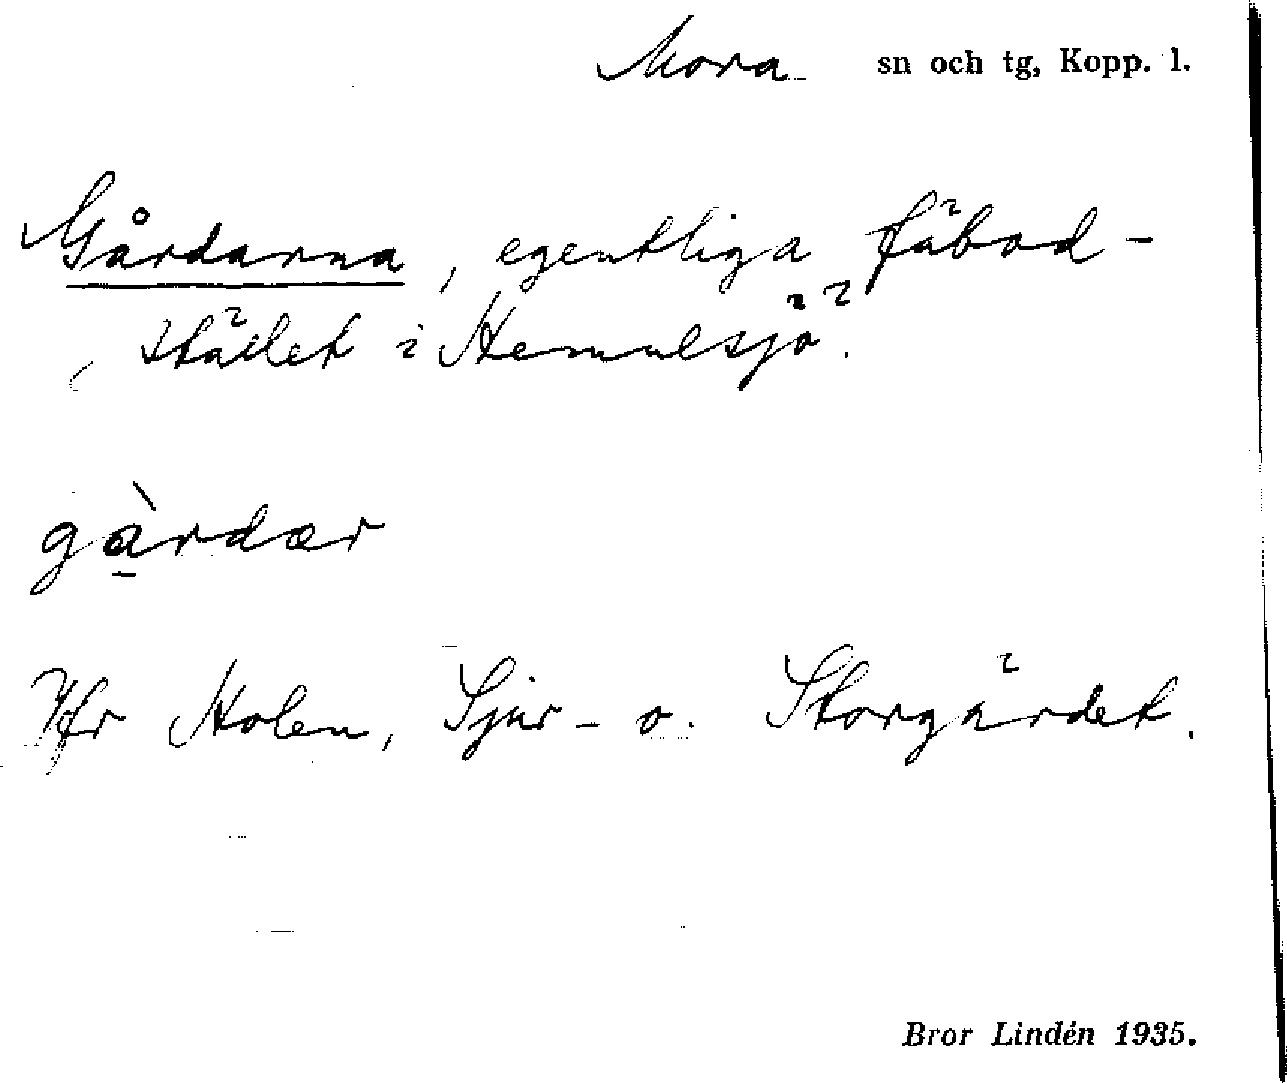 Mora sn och tg, Kopp. l.
Gårdarna, egentliga fäbod-
stället i Hemulsjö.
gàrdær
Jfr Holen, Sjur- o. Storgärdet.
Bror Lindén 1935.